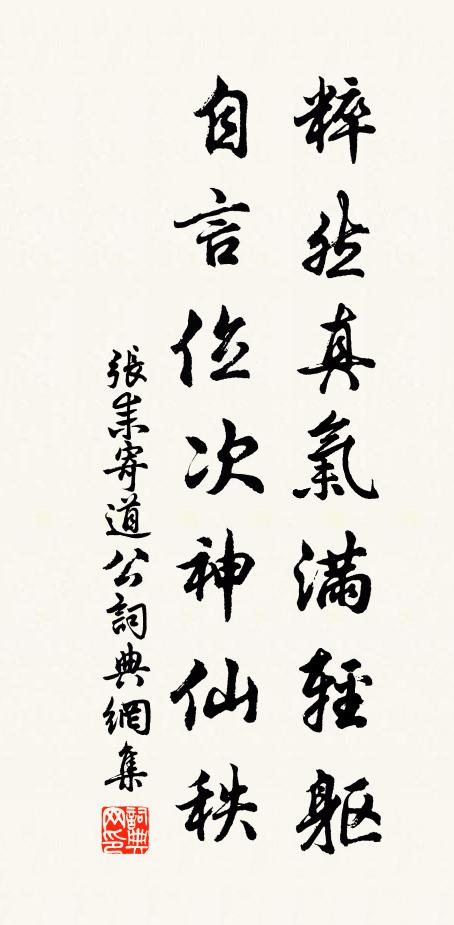 粹然真氣滿輕軀
自言位次神仙秩
張耒寄道公詞典網集
詞典网印